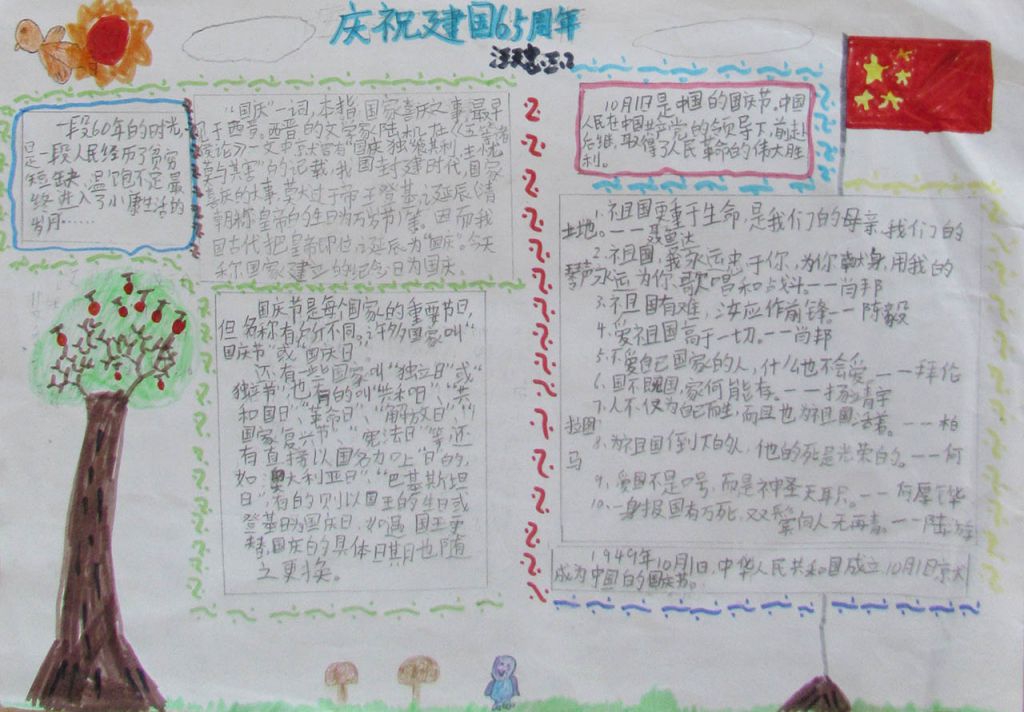 庆祝建国65周年
一段60年的时光,
是一段人民经历了贫穷
短缺,温饱不定最
终进入了小康生活的
岁月……
"国庆"一词,本指国家喜庆之事,最早
见于西晋。西晋的文学家陆机在《五等诸侯
论》一文中
"国庆独飨其利,主忧
莫与其害"的记载,我国封建时代,国家
喜庆的大事,莫大过于帝王登基、诞辰(清
朝称皇帝的生日为万岁节)等。因而我
国古代把皇帝即位、诞辰为"国庆"。今天
称国家建立的纪念日为国庆。
国庆节是每个国家的重要节日,
但名称有所不同。许多国家叫"
国庆节"或"国庆日"。
还有一些国家叫"独立日"或"
独立节",也有的叫"共和日"、"共
和国日"、"革命日"、"解放日"、"
国家复兴节"、"宪法日"等,还
有直接以国名加上"日"的,
如"澳大利亚日"、"巴基斯坦
日",有的则以国王的生日或
登基日为国庆日,如遇国王更
替,国庆的具体日期也随
之更换。
10月1日是中国的国庆节,中国
人民在中国共产党的领导下,前赴
后继,取得了人民革命的伟大胜
利。
1、祖国更重于生命,是我们的母亲,我们的
土地。——聂鲁达
2、祖国,我永远忠于你,为你献身,用我的
琴声永远为你歌唱和战斗——肖邦
3、祖国有难,汝应作前锋——陈毅
4、爱祖国高于一切。——肖邦
5、不爱自己国家的人,什么也不会爱——拜伦
6、国不
国,家何能存。——
7、人不仅为自己而生,而且也为祖国活着。——柏
拉图
8、为祖国倒下的人,他的死是光荣的。——何
马
9、爱国不是口号,而是神圣天职。——
10、一身报国有万死,双鬓向人无再青。——陆游
1949年10月1日,中华人民共和国成立,10月1日
成为中国的国庆节。